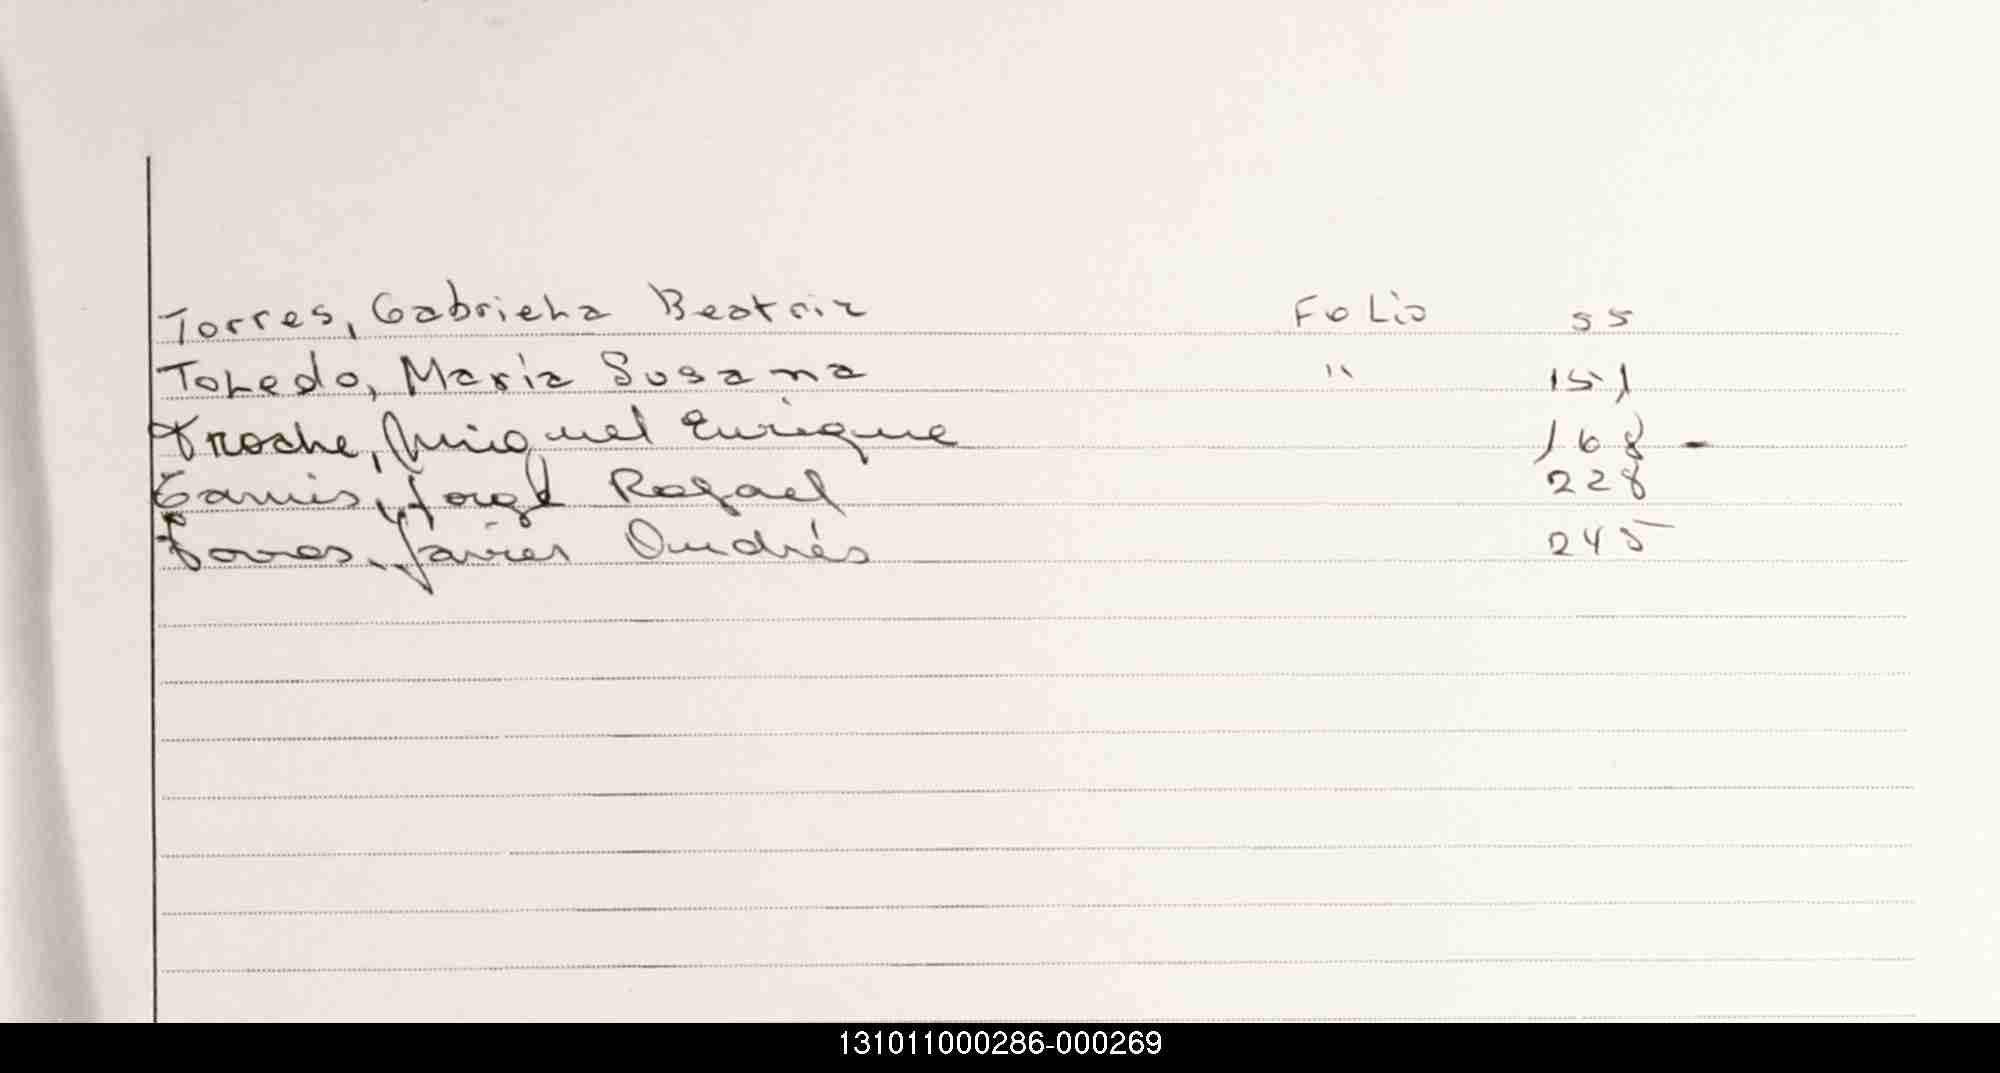 Torres, Gabriela Beatriz Folio 55
Toledo, María Susana " 151
Troche, Miguel Enrique 168 -
Jorge Rafael 228
Torres, Javier Andrés 245
131011000286-000269